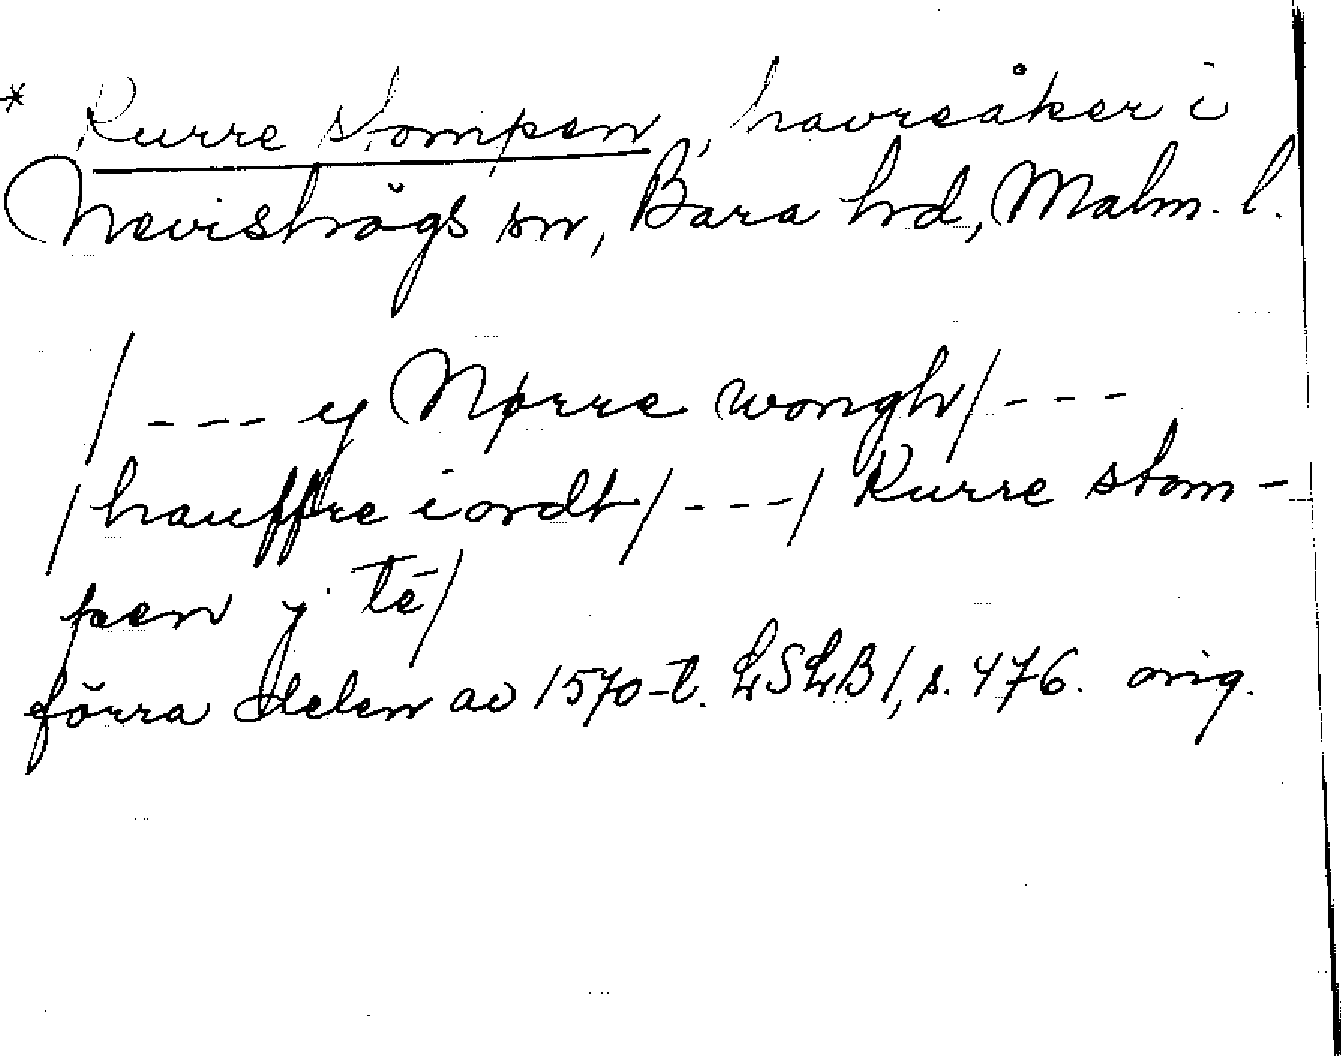 * Kurre stompen, havreåker i
Nevishögs sn, Bara hd, Malm. l.
/ - - - y Nørre wongh/ - - -
/hauffre iordt/ - - - / Kurre stom-
pen y tē/
förra delen av 1570-t. LSLB 1, s. 476. orig.